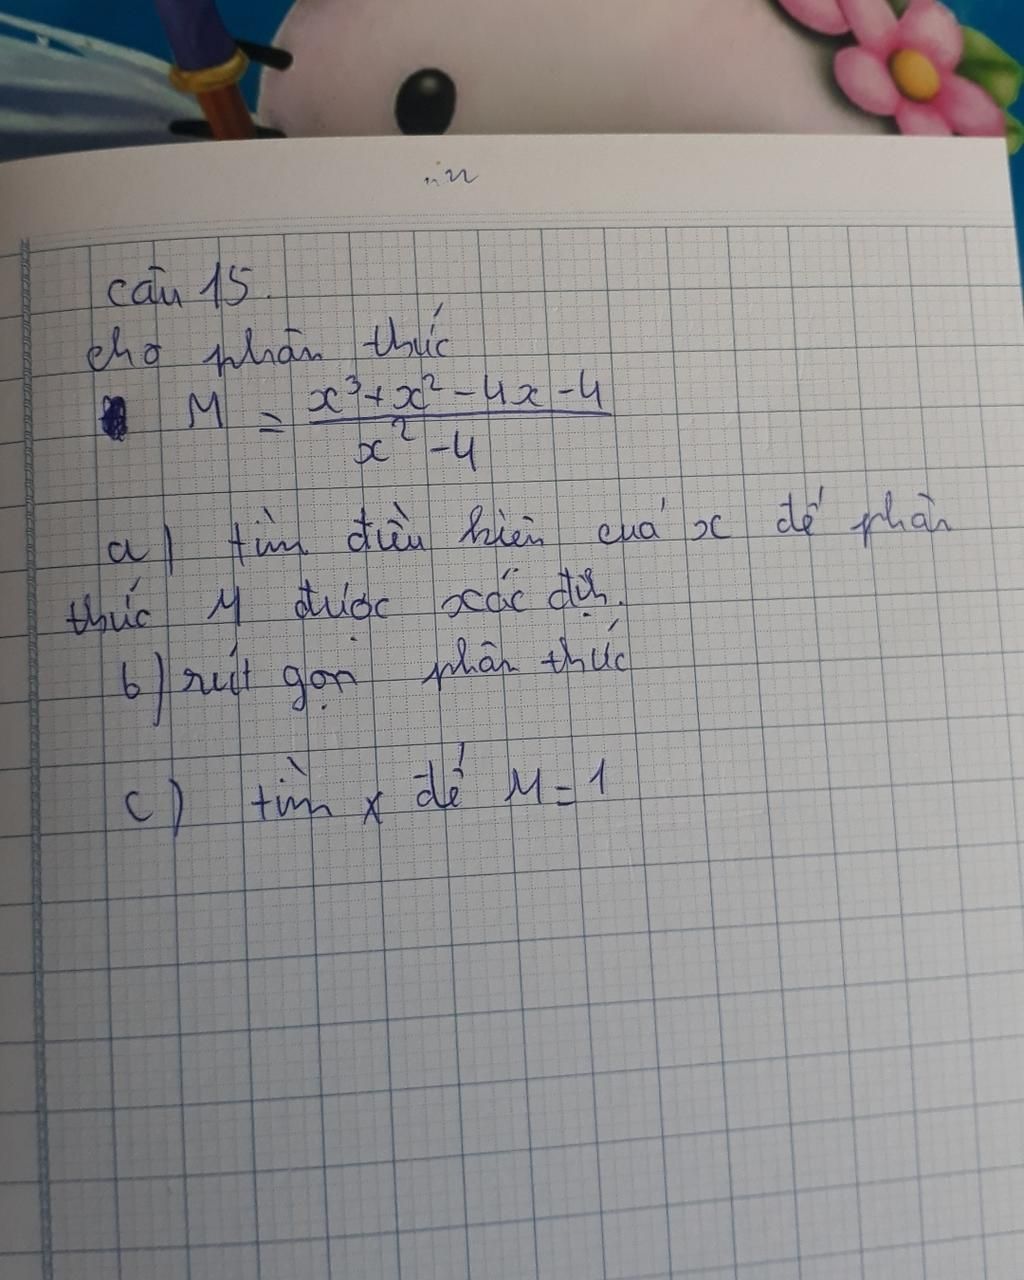 câu 15.
cho phân thức
M = \frac{x^3 + x^2 - 4x - 4}{x^2 - 4}
a) tìm điều kiên cuả x để phân
thức M được xác địh.
b) rút gọn phân thức
c) tìm x để M = 1